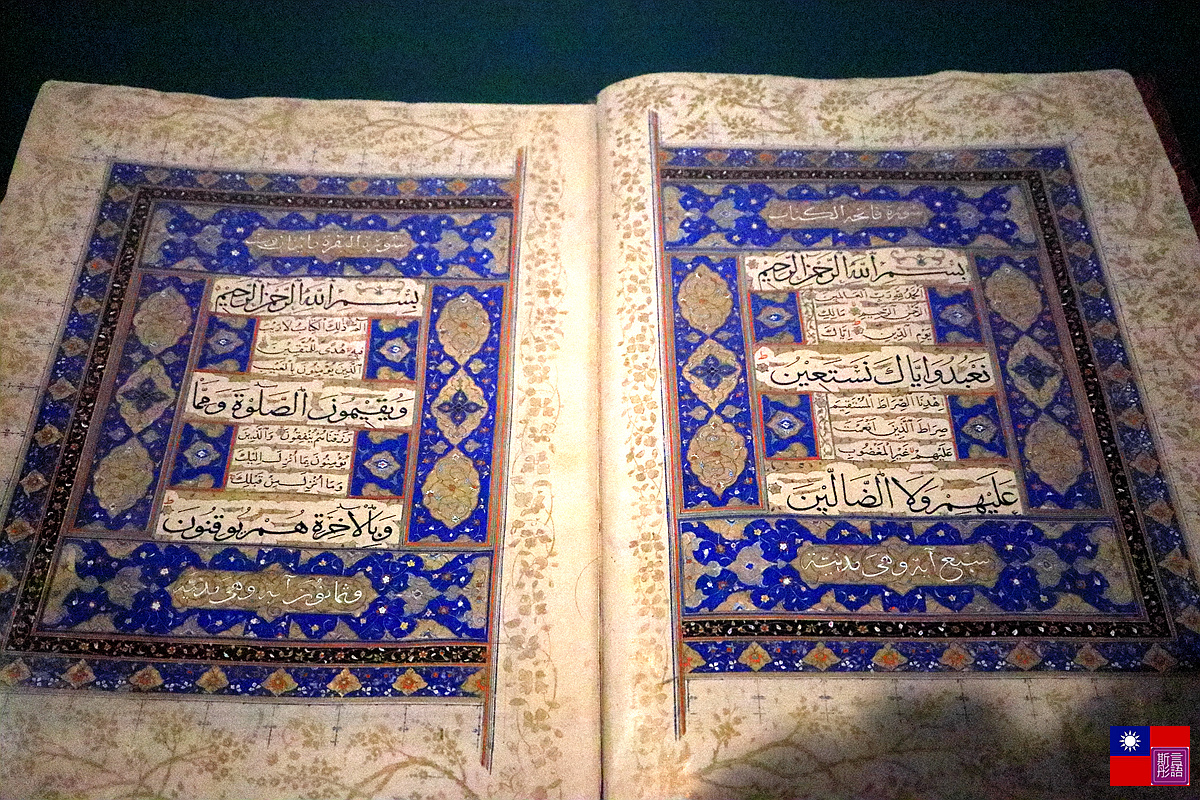 سورة فاتحة الكتاب
بسم الله الرحمن الرحيم
الحمد لله رب العالمين
الرحمن الرحيم مالك
يوم الدين اياك
نعبد واياك نستعين
اهدنا الصراط المستقيم
صراط الذين انعمت
عليهم غير المغضوب
عليهم ولا الضالين
سبع آية وهي مدنية
سورة البقرة مائتان
بسم الله الرحمن الرحيم
الم ذلك الكتاب لا ريب
فيه هدى للمتقين
الذين يؤمنون بالغيب
ويقيمون الصلوة ومما
رزقناهم ينفقون والذين
يؤمنون بما انزل اليك
وما انزل من قبلك
وبالآخرة هم يوقنون
آية وهي مدنية
言語
斯彤